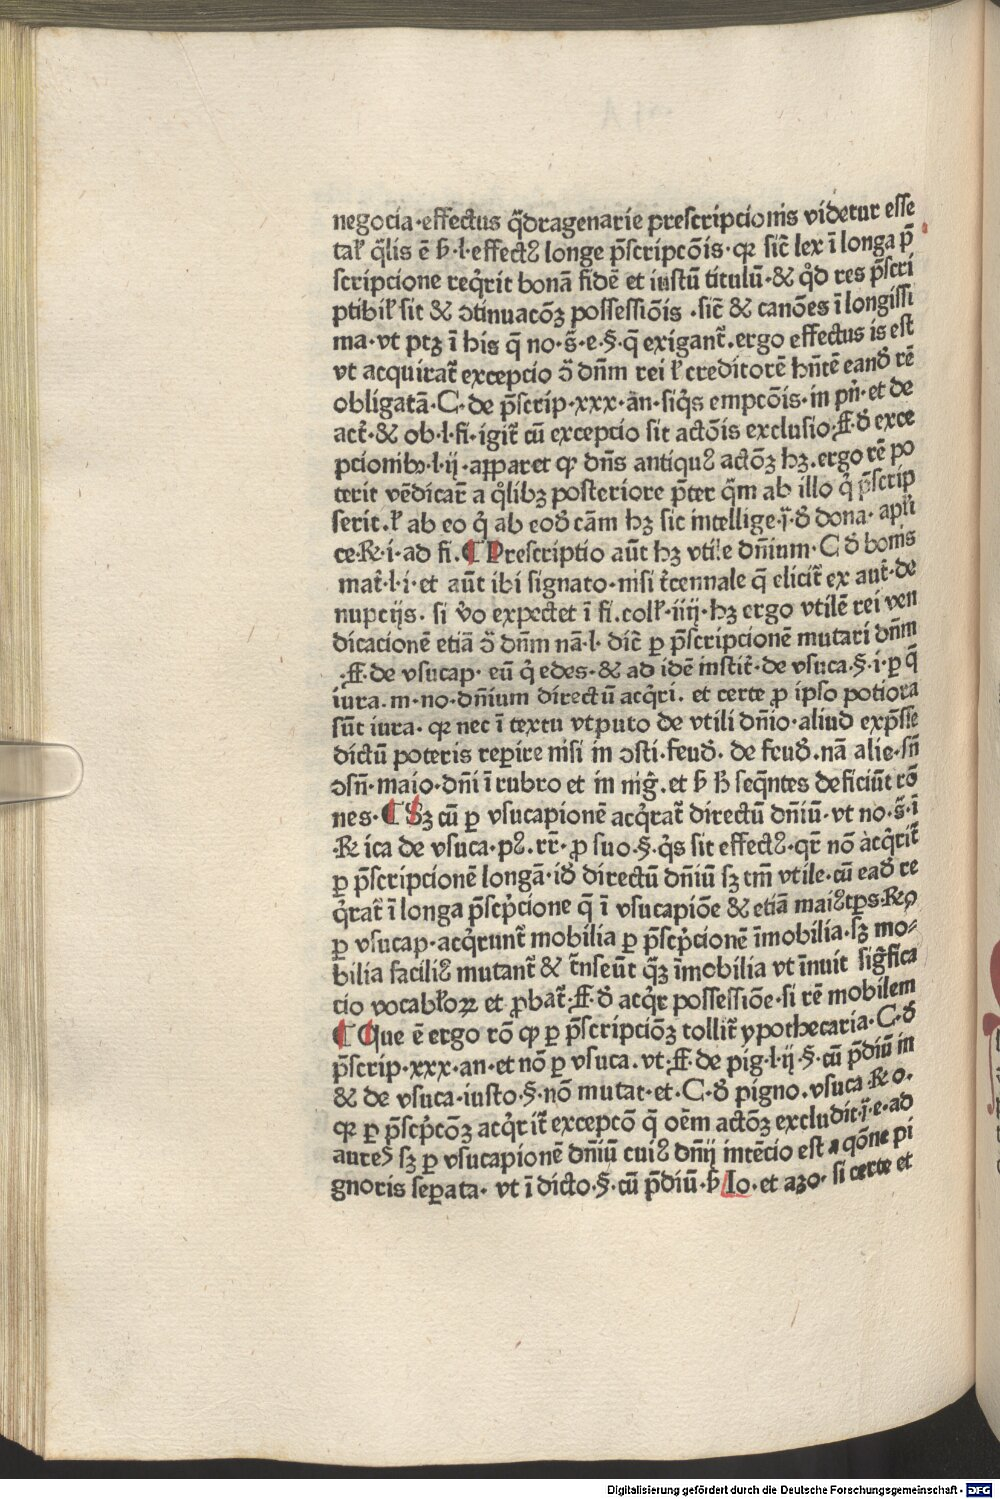 negocia·effectus q̃dragenarie prescripcionis videtur esse
tal̃ q̃lis ē h̄·l·effectꝰ longe p̃scripcõis·qꝛ sic̃ lex ī longa p̃
scripcione req̃rit bonã fidẽ et iustũ titulũ·& qd̃ res p̃scri
ptibil̃ sit & ↄtinuacõꝫ possessiõis·sic̃ & canões ī longissi
ma·vt ptꝫ ī his q̃ no·s̃·e·§·q̃ exigant̃.ergo effectus is est
vt acquirat̃ excepcio ↄ̃ dñm rei ł creditorẽ hñtẽ eand̃ rẽ
obligatã·C·de p̃scrip·xxx·ãn·siq̃s empcõis·in pñ·et de
act̃·& ob·l·fi·igit̃ cũ excepcio sit actõis exclusio·ff·d̃ exce
pcionibꝰ·l·ij·apparet ꝙ dñs antiquꝰ actõꝫ hꝫ.ergo rẽ po
terit vẽdicar̃ a q̃libꝫ posteriore p̃ter q̃m ab illo q̃ p̃scrip
serit.ł ab eo q̃ ab eod̃ cãm hꝫ sic intellige·j̃·d̃ dona·apli
ce·℞·i·ad fi.¶ Prescriptio aũt hꝫ vtile dñium·C d̃ bonis
mat̃·l·i·et aũt ibi signato·nisi t̃cennale q̃ elicit̃ ex aut̃·de
nupcijs. si v̉o expectet ī fi.coll̃·iiij·hꝫ ergo vtilẽ rei ven
dicacionẽ etiã ↄ̃ dñm nã·l· dic̃ ꝑ p̃scripcionẽ mutari dñm
·ff·de vsucap· eũ q̃ edes·& ad idẽ instit̃·de vsuca·§·i·ꝑ q̃
iura.m·no·dñium directũ acq̃ri. et certe ꝓ ipso potiora
sũt iura·qꝛ nec ī textu vtputo de vtili dñio·aliud exp̃sse
dictũ poteris reꝑire nisi in ↄsti·feud̃. de feud̃.nã alie·sñ
ↄsñ·maio·dñi ī rubro et in nig̃.et h̄ h̃ seq̃ntes deficiũt rõ
nes·¶ Sꝫ cũ ꝑ vsucapionẽ acq̃rat̃ directũ dñiũ·vt no·s̃·ī
·℞ ica de vsuca·pꝰ.rr̃·ꝓ suo·§·q̃s sit effectꝰ·qr̃ nõ àcq̃rit̃
ꝑ p̃scripcionẽ longã·id̃ directũ dñiũ sꝫ tm̃ vtile·cũ ead̃ re
q̃rat̃ ī longa p̃scp̃cione q̃ ī vsucapiõe & etiã maiꝰ tp̃s·℞o
ꝑ vsucap·acq̃runt̃ mobilia ꝑ p̃scp̃cionẽ īmobilia·sꝫ mo⸗
bilia faciliꝰ mutant̃ & t̃nseũt q̃ꝫ īmobilia vt īnuit sig̃fica
tio vocabłoꝝ et ꝓbat̃·ff·d̃ acq̃r possessiõe·si rẽ mobilem
¶ Que ē ergo rõ ꝙ ꝑ p̃scripciõꝫ tollit̃ ypothecaria·C·d̃
p̃scrip·xxx·an·et nõ ꝑ vsuca.vt·ff·de pig·l·ij·§·cũ p̃diũ in
& de vsuca·iusto·§·nõ mutat·et·C·d̃ pigno.vsuca·℞o·
qꝛ ꝑ p̃scp̃cõꝫ acq̃rit̃ excepcõ q̃ oẽm actõꝫ excludit·j̃·e·ad
aures sꝫ ꝑ vsucapionẽ dñiũ cuiꝰ dñij intẽcio est a qõne pi
gnoris seꝑata· vt ī dicto·§·cũ p̃diũ·h̄ Io·et azo·si certe et
Digitalisierung gefördert durch die Deutsche Forschungsgemeinschaft · DFG